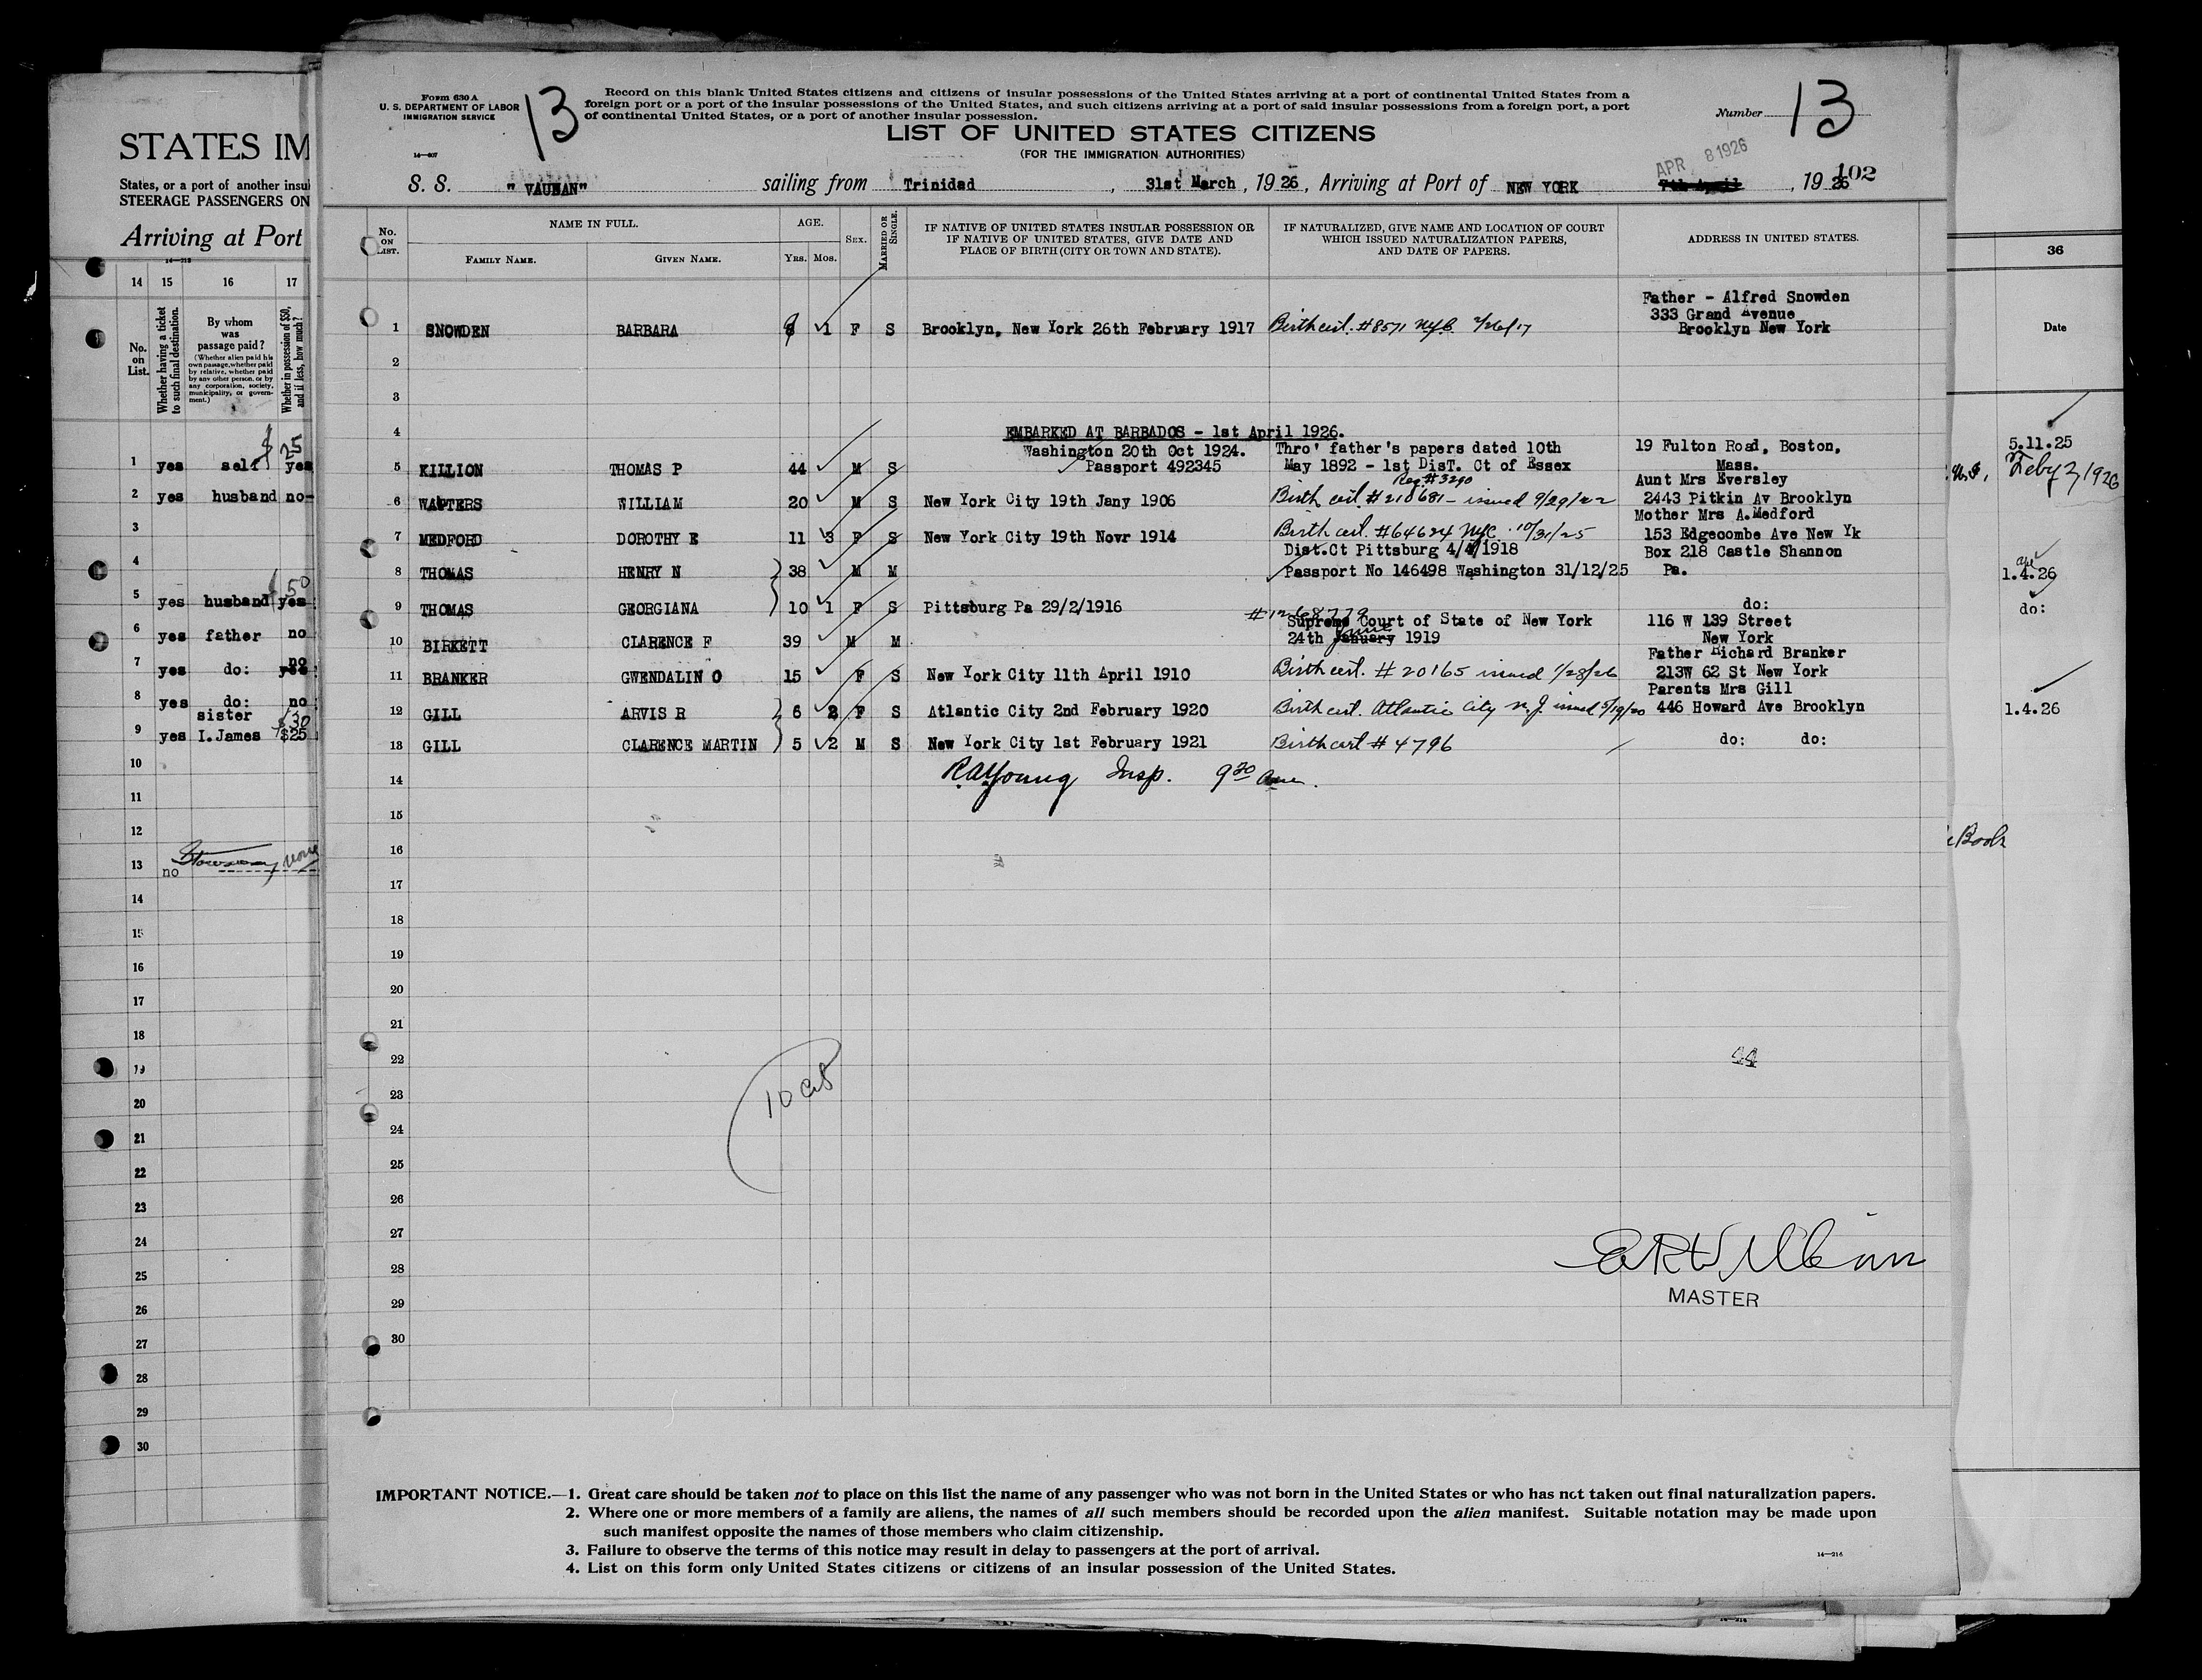 STATES IM
States, or a port of another insul
STEERAGE PASSENGERS ON
Arriving at Port
14 15 16 17
No. on List.
Whether having a ticket to such final destination.
By whom was passage paid?
(Whether alien paid his own passage, whether paid by relative, whether paid by any other person, or by any corporation, society, municipality, or government.)
Whether in possession of $50, and if less, how much?
1 yes self yes $25
2 yes husband no
3
4
5 yes husband yes 50
6 yes father no
7 yes do: yes no
8 yes do: no
9 yes sister I.James $25 $30
10
11
12
13 no
14
15
16
17
18
19
20
21
22
23
24
25
26
27
28
29
30
Form 630 A
U. S. DEPARTMENT OF LABOR
IMMIGRATION SERVICE
14—607
13
Record on this blank United States citizens and citizens of insular possessions of the United States arriving at a port of continental United States from a
foreign port or a port of the insular possessions of the United States, and such citizens arriving at a port of said insular possessions from a foreign port, a port
of continental United States, or a port of another insular possession.
LIST OF UNITED STATES CITIZENS
(FOR THE IMMIGRATION AUTHORITIES)
Number 13
APR 8 1926
102
S. S. "VAUBAN" sailing from Trinidad, 31st March, 1926, Arriving at Port of NEW YORK 7th April, 1926
No. ON LIST.
NAME IN FULL.
FAMILY NAME. GIVEN NAME.
AGE.
YRS. MOS.
SEX.
MARRIED OR SINGLE.
IF NATIVE OF UNITED STATES INSULAR POSSESSION OR
IF NATIVE OF UNITED STATES, GIVE DATE AND
PLACE OF BIRTH (CITY OR TOWN AND STATE).
IF NATURALIZED, GIVE NAME AND LOCATION OF COURT
WHICH ISSUED NATURALIZATION PAPERS,
AND DATE OF PAPERS.
ADDRESS IN UNITED STATES.
Father - Alfred Snowden
333 Grand Avenue
1 SNOWDEN BARBARA 9 1 F S Brooklyn, New York 26th February 1917 Birth cert. #8571 NYC 2/26/17 Brooklyn New York
2
3
4 EMBARKED AT BARBADOS - 1st April 1926.
Washington 20th Oct 1924. Thro' father's papers dated 10th 19 Fulton Road, Boston,
5 KILLION THOMAS P 44 M S Passport 492345 May 1892 - 1st DisT. Ct of Essex Mass.
Reg #3290 Aunt Mrs Eversley
6 WATTERS WILLIAM 20 M S New York City 19th Jany 1906 Birth cert. #210681 - issued 9/29/22 2443 Pitkin Av Brooklyn
Mother Mrs A.Medford
7 MEDFORD DOROTHY E 11 3 F S New York City 19th Novr 1914 Birth cert. #64624 NYC. 10/31/25 153 Edgecombe Ave New Yk
Dist.Ct Pittsburg 4/4/1918 Box 218 Castle Shannon
8 THOMAS HENRY N 38 M M Passport No 146498 Washington 31/12/25 Pa.
9 THOMAS GEORGIANA 10 1 F S Pittsburg Pa 29/2/1916 do:
#1268779
Supreme Court of State of New York 116 W 139 Street
10 BIRKETT CLARENCE F 39 M M 24th January June 1919 New York
Father Richard Branker
11 BRANKER GWENDALIN O 15 F S New York City 11th April 1910 Birth cert. #20165 issued 1/28/26 213W 62 St New York
Parents Mrs Gill
12 GILL ARVIS R 6 2 F S Atlantic City 2nd February 1920 Birth cert. Atlantic City N.J. issued 5/19/20 446 Howard Ave Brooklyn
13 GILL CLARENCE MARTIN 5 2 M S New York City 1st February 1921 Birth cert #4796 do: do:
14 R A Young Insp. 9 20 am.
15
16
17
18
19
20
21
22
23
24
25
26
27
28
29
30
44
MASTER
IMPORTANT NOTICE.—1. Great care should be taken not to place on this list the name of any passenger who was not born in the United States or who has not taken out final naturalization papers.
2. Where one or more members of a family are aliens, the names of all such members should be recorded upon the alien manifest. Suitable notation may be made upon
such manifest opposite the names of those members who claim citizenship.
3. Failure to observe the terms of this notice may result in delay to passengers at the port of arrival.
4. List on this form only United States citizens or citizens of an insular possession of the United States.
14—216
36
Date
5.11.25
Feby 2, 1926
1.4.26
do:
1.4.26
Book